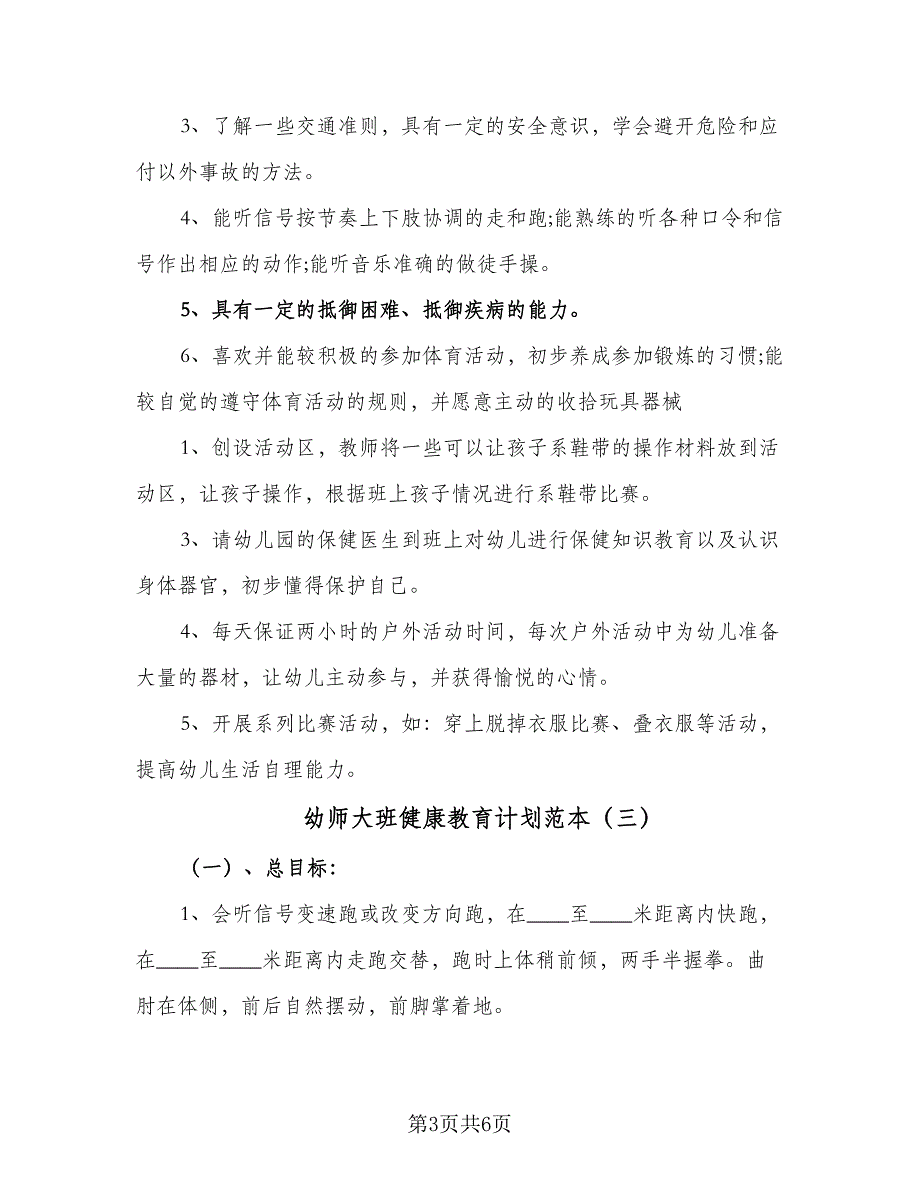 3、了解一些交通准则，具有一定的安全意识，学会避开危险和应
付以外事故的方法。
4、能听信号按节奏上下肢协调的走和跑;能熟练的听各种口令和信
号作出相应的动作;能听音乐准确的做徒手操。
5、具有一定的抵御困难、抵御疾病的能力。
6、喜欢并能较积极的参加体育活动，初步养成参加锻炼的习惯;能
较自觉的遵守体育活动的规则，并愿意主动的收拾玩具器械
1、创设活动区，教师将一些可以让孩子系鞋带的操作材料放到活
动区，让孩子操作，根据班上孩子情况进行系鞋带比赛。
3、请幼儿园的保健医生到班上对幼儿进行保健知识教育以及认识
身体器官，初步懂得保护自己。
4、每天保证两小时的户外活动时间，每次户外活动中为幼儿准备
大量的器材，让幼儿主动参与，并获得愉悦的心情。
5、开展系列比赛活动，如：穿上脱掉衣服比赛、叠衣服等活动，
提高幼儿生活自理能力。
幼师大班健康教育计划范本（三）
（一）、总目标：
1、会听信号变速跑或改变方向跑，在____至____米距离内快跑，
在____至____米距离内走跑交替，跑时上体稍前倾，两手半握拳。曲
肘在体侧，前后自然摆动，前脚掌着地。
第3页共6页